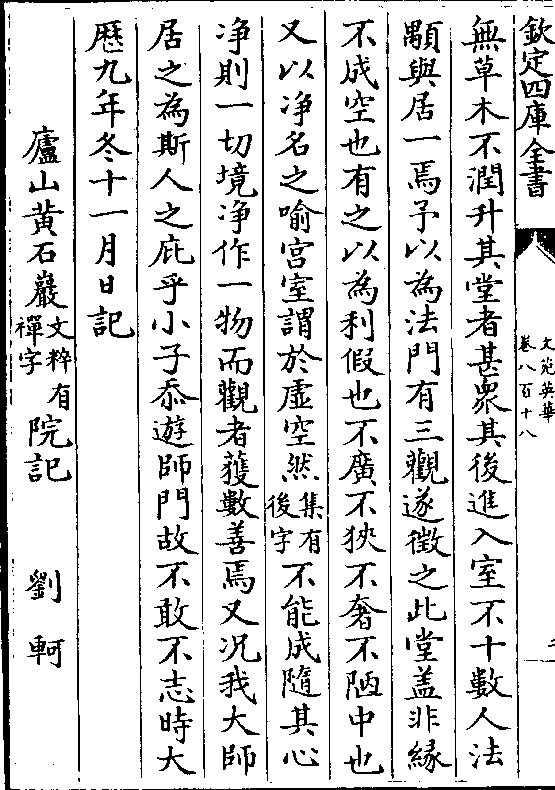 欽定四庫全書
文苑英華
卷八百十八
無草木不潤升其堂者甚衆其後進入室不十數人法
顒與居一焉予以為法門有三觀遂徵之此堂盖非縁
不成空也有之以為利假也不廣不狹不奢不陋中也
又以净名之喻宫室謂於虛空然集有後字不能成隨其心
净則一切境净作一物而觀者獲數善焉又况我大師
居之為斯人之庇乎小子忝遊師門故不敢不志時大
厯九年冬十一月日記
廬山黄石巖文粹有禪字院記 劉軻